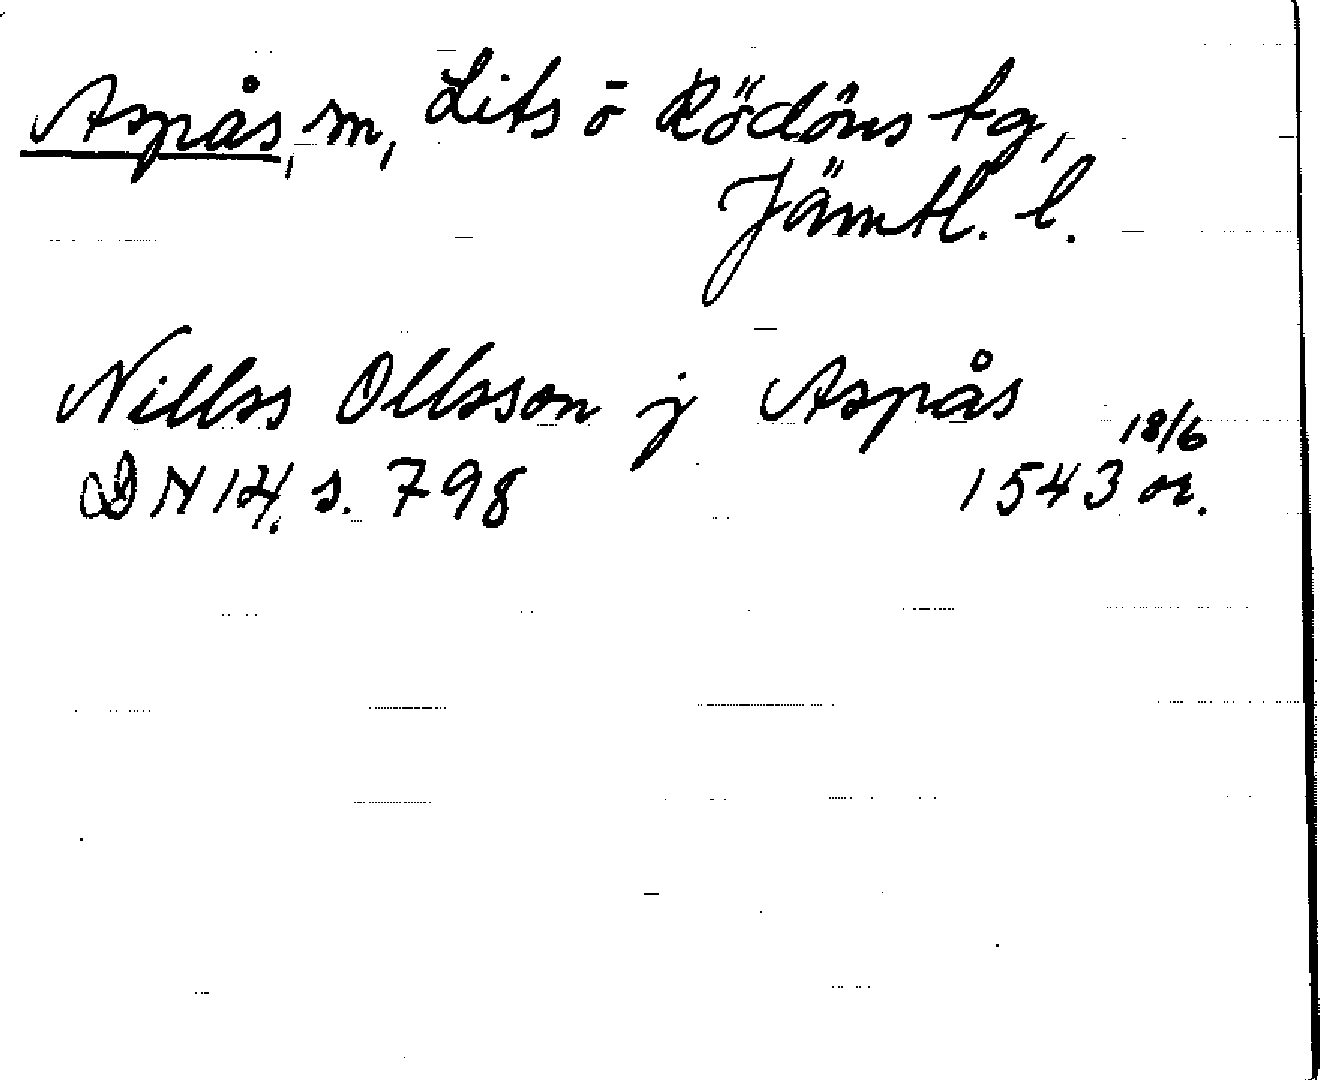 Aspås, sn, Lits o Rödöns tg,
Jämtl. l.
Nillss Ollsson j Aspås
18/6
DN 14, s. 798 1543 or.